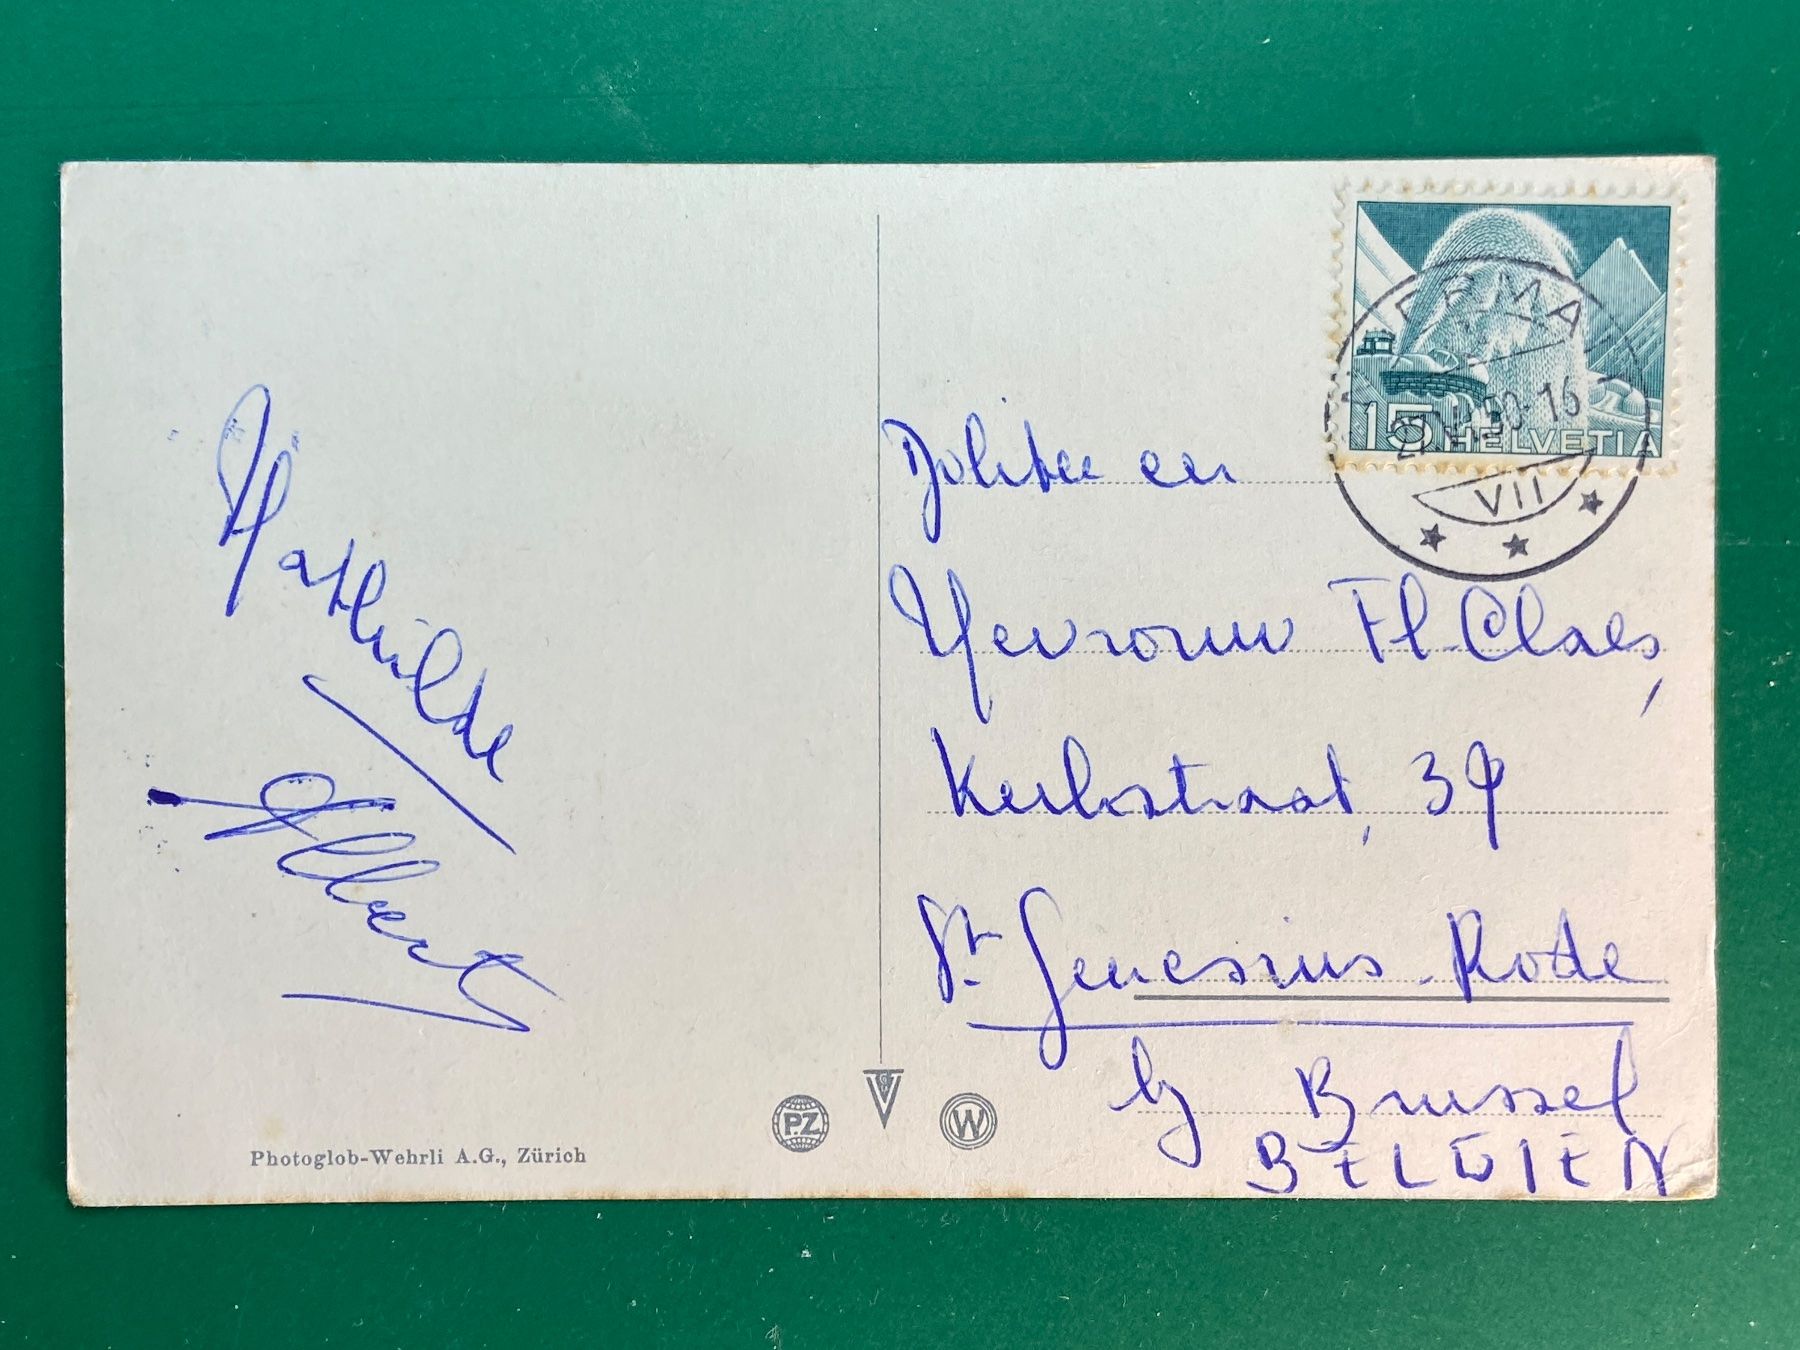 Mathilde
Albert
Photoglob-Wehrli A.G., Zürich
PZ
W
15 HELVETIA
50-16
VII
en
Mevrouw Fl. Claes,
Kerkstraat, 39
St Genesius-Rode
by Brussel
BELGIEN